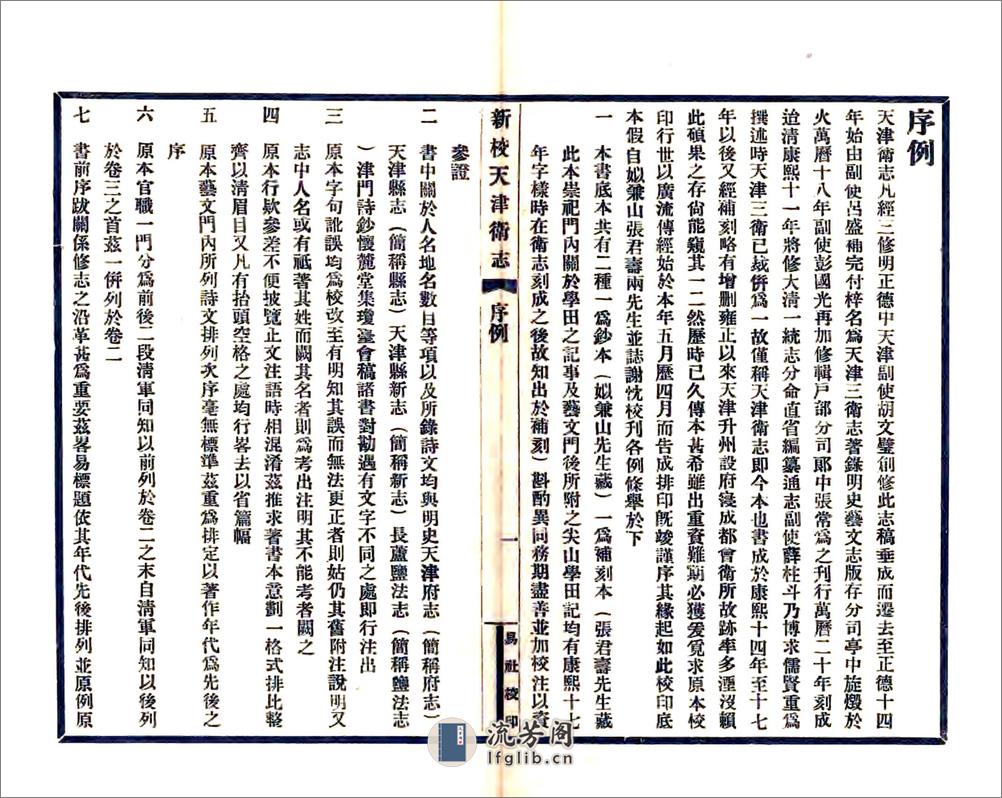 序例
天津衛志凡經三修明正德中天津副使胡文璧創修此志稿垂成而遷去至正德十四
年始由副使呂盛補完付梓名爲天津三衛志著錄明史藝文志版存分司亭中旋燬於
火萬曆十八年副使彭國光再加修輯戶部分司郎中張常爲之刊行萬曆二十年刻成
迨清康熙十一年將修大清一統志分命直省編纂通志副使薛柱斗乃博求儒賢重爲
撰述時天津三衛已裁併爲一故僅稱天津衛志即今本也書成於康熙十四年至十七
年以後又經補刻略有增删雍正以來天津升州設府寖成都會衛所故跡率多湮沒賴
此碩果之存尙能窺其一二然歷時已久傳本甚希雖出重資難期必獲爰覓求原本校
印行世以廣流傳經始於本年五月歷四月而告成排印旣竣謹序其緣起如此校印底
本假自姒兼山張君壽兩先生並誌謝忱校刊各例條舉於下
一　本書底本共有二種一爲鈔本（姒兼山先生藏）一爲補刻本（張君壽先生藏
此本崇祀門內關於學田之記事及藝文門後所附之尖山學田記均有康熙十七
年字樣時在衛志刻成之後故知出於補刻）斟酌異同務期盡善並加校注以資
新校天津衛志
序例
一
易社校印
參證
二　書中關於人名地名數目等項以及所錄詩文均與明史天津府志（簡稱府志）
天津縣志（簡稱縣志）天津縣新志（簡稱新志）長蘆鹽法志（簡稱鹽法志
）津門詩鈔懷麓堂集瓊臺會稿諸書對勘遇有文字不同之處即行注出
三　原本字句訛誤均爲校改至有明知其誤而無法更正者則姑仍其舊附注說明又
志中人名或有祗著其姓而闕其名者則爲考出注明其不能考者闕之
四　原本行欵參差不便披覽正文注語時相混淆茲推求著書本意劃一格式排比整
齊以清眉目又凡有抬頭空格之處均行畧去以省篇幅
五　原本藝文門內所列詩文排列次序毫無標準茲重爲排定以著作年代爲先後之
序
六　原本官職一門分爲前後二段清軍同知以前列於卷二之末自清軍同知以後列
於卷三之首茲一併列於卷二
七　書前序跋關係修志之沿革甚爲重要茲畧易標題依其年代先後排列並原例原
流芳阁
lfglib.cn